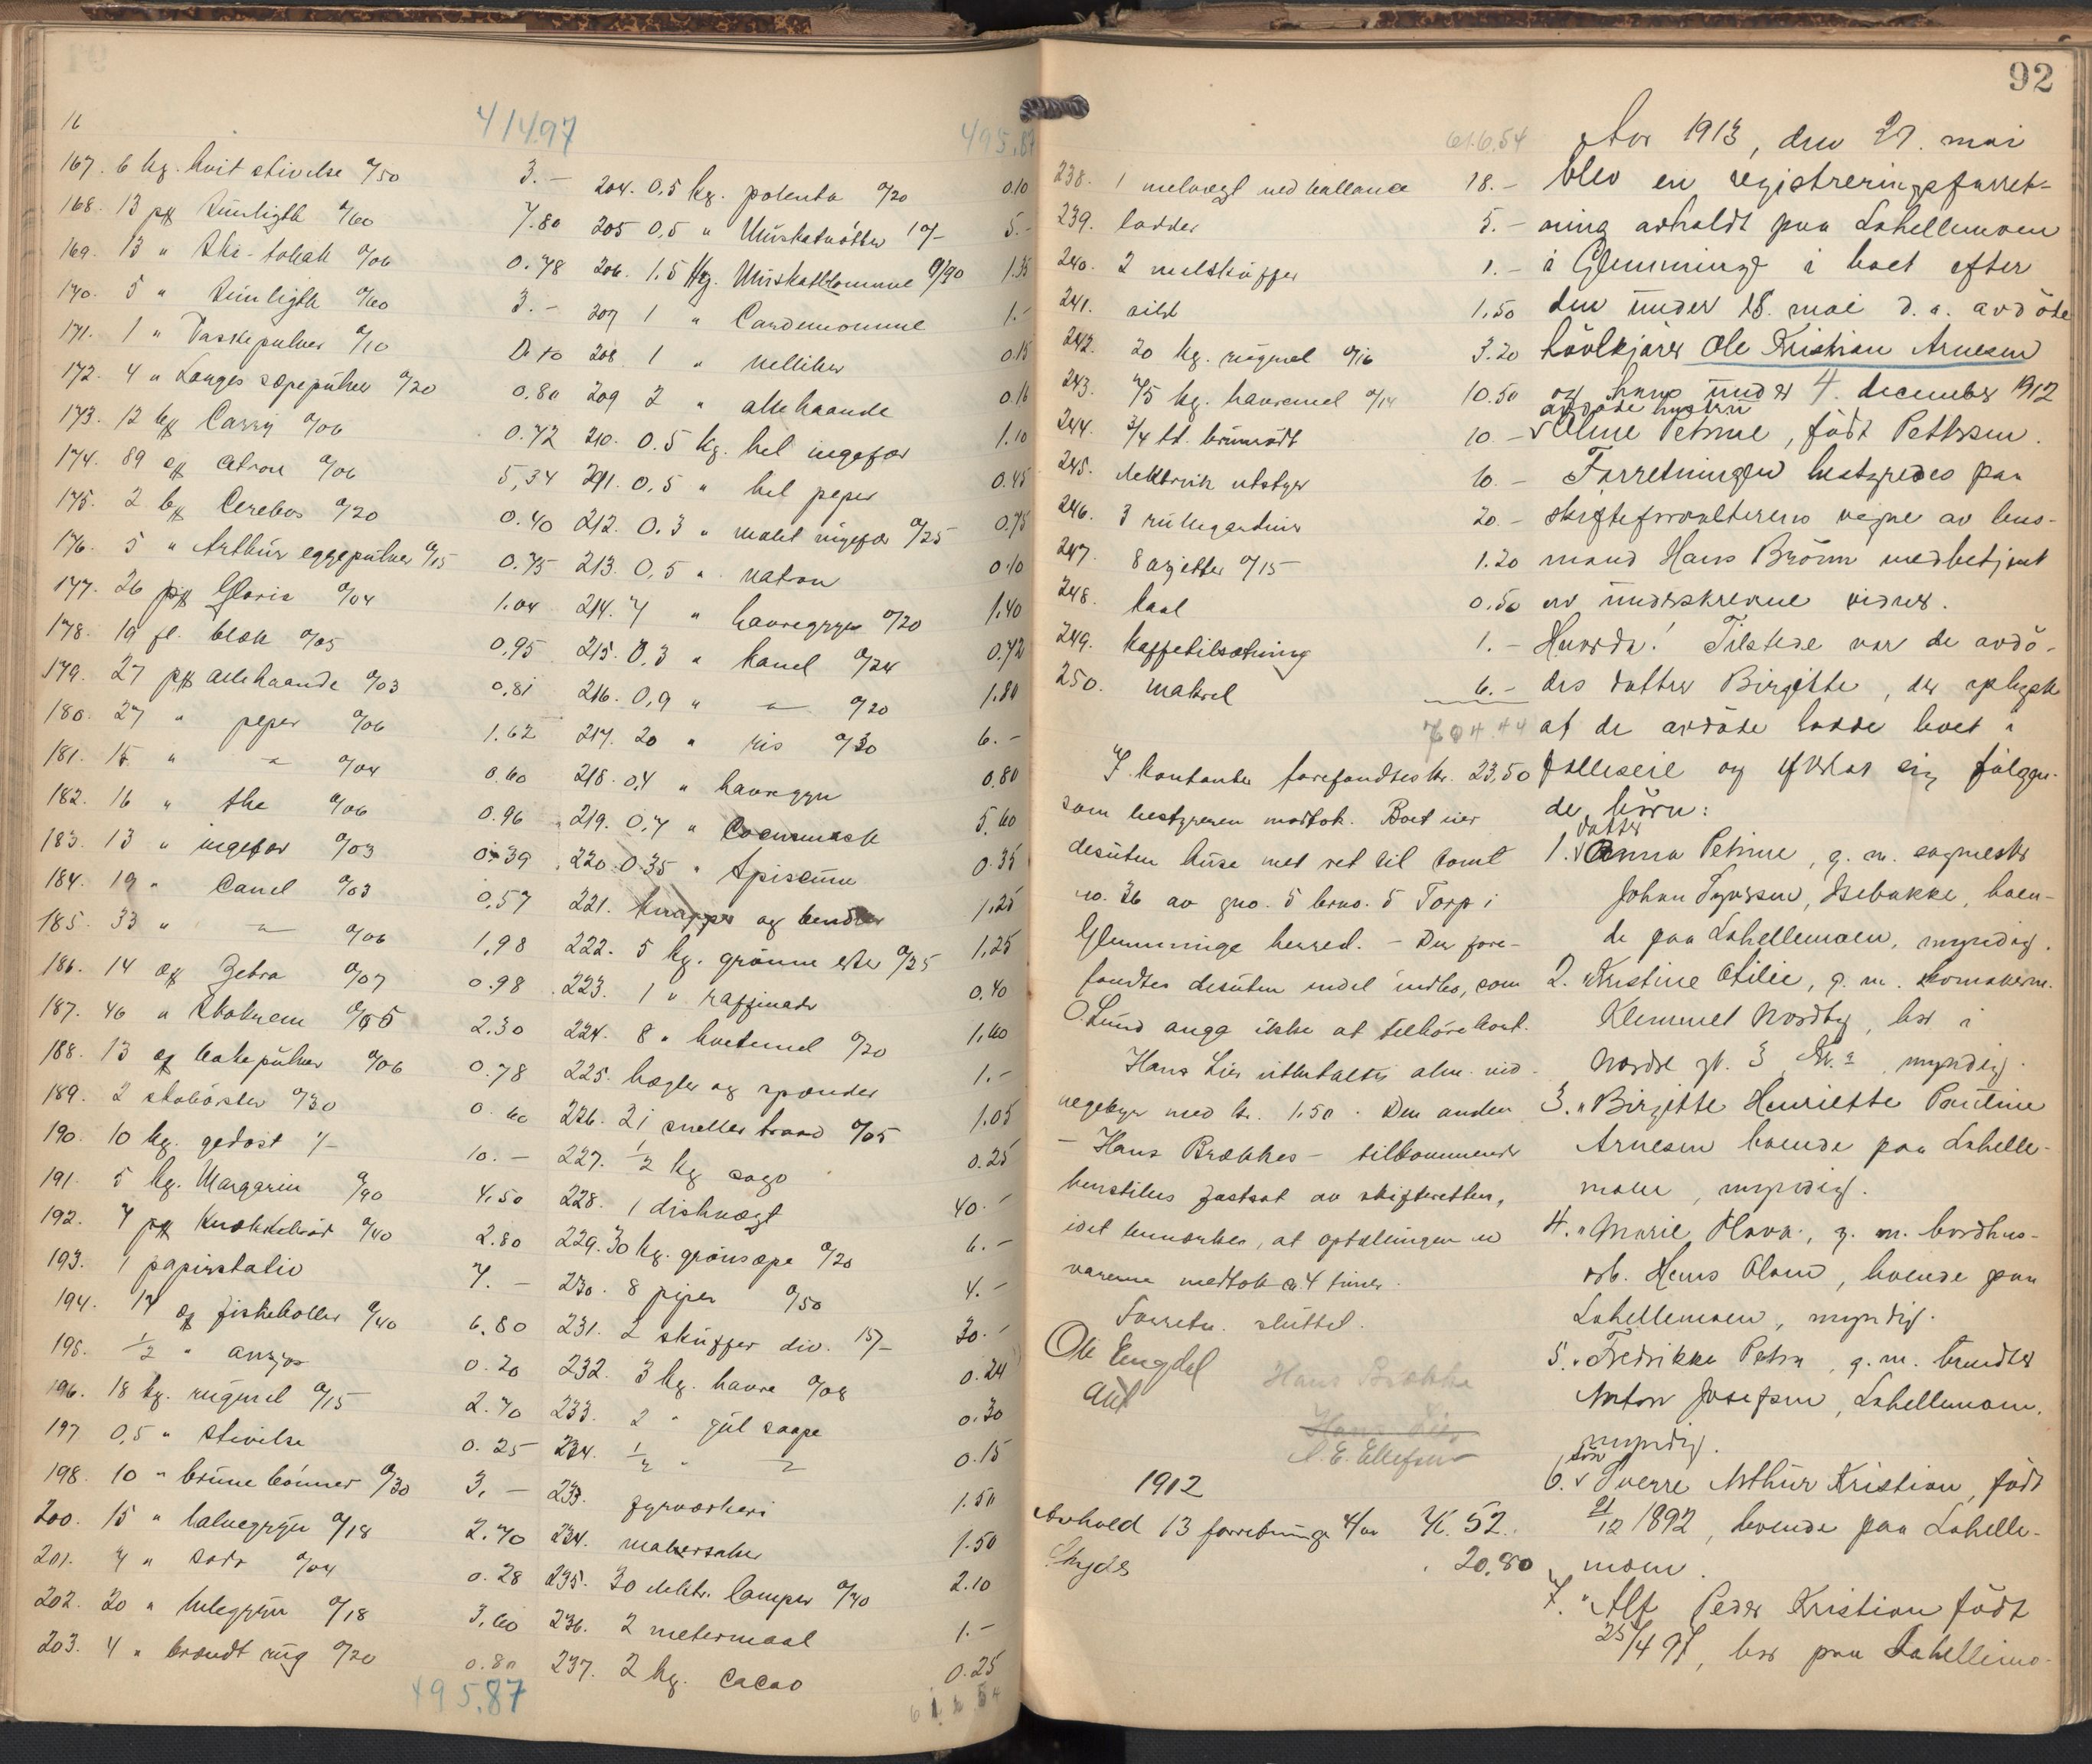 16
414.97
167. 6 kg. hvit stivelse a/50 3.-
168. 13 pk Sunligth a/60 7.80
169. 13 " a/06 0.78
170. 5 " Sunligth a/60 3.-
171. 1 " Vaskepulver a/10 0.10
172. 4 " Langes sæpepulver a/20 0.80
173. 12 Carry a/06 0.72
174. 89 citron a/06 5,34
175. 2 Cerebos a/20 0.40
176. 5 " Arthur eggepulver a/15 0.75
177. 26 pk Gloria a/04 1.04
178. 19 fl. blæk a/05 0,95
179. 27 pk allehaande a/03 0,81
180. 27 " peper a/06 1.62
181. 15 " " a/04 0.60
182. 16 " the a/06 0.96
183. 13 " ingefær a/03 0.39
184. 19 " Canel a/03 0.57
185. 33 " " a/06 1,98
186. 14 Zebra a/07 0.98
187. 46 " Skokrem a/05 2.30
188. 13 bakepulver a/06 0.78
189. 2 skobørster a/30 0.60
190. 10 kg. gedost 1/- 10.-
191. 5 kg. Margarin a/90 4.50
192. 7 pk Knækkebrød a/40 2.80
193. 1 papirstativ 7.-
194. 17 fiskeboller a/40 6.80
195. 1/2 " ansjos 0.20
196. 18 kg. rugmel a/15 2.70
197 0,5 " Stivelse 0.25
198. 10 " brune bønner a/30 3.-
200. 15 " a/18 2.70
201. 7 " soda a/04 0.28
202. 20 " a/18 3,60
203. 4 " brændt rug a/20 0.80
495.87
495.87
204. 0,5 kg. potenta a/20 0.10
205 0,5 " Muskatnötter 10/- 5.-
206. 1.5 Hg. Muskatblomme a/90 1.35
207 1 " Cardemomme 1.-
208 1 " nelliker 0.15
209 2 " allehaande 0.16
210. 0.5 kg. hel ingefær 1.10
211. 0,5 " hel peper 0.45
212. 0.3 " malet ingefær a/25 0.75
213. 0,5 " natron 0.10
214. 7 " havregryn a/20 1.40
215. 0,3 " kanel a/24 0.72
216. 0,9 " " a/20 1.80
217. 20 " ris a/30 6.-
218. 0,4 " havregryn 0.80
219. 0,7 " Cocusmask 5.60
220. 0.35 " Spiscum 0.35
221. knapper og bendler 1.25
222. 5 kg. grønne erter a/25 1,25
223. 1 " raffinade 0.40
224. 8 " hvetemel a/20 1,60
225. hægter og spænder 1.-
226. 21 sneller traad a/05 1.05
227. 1/2 kg sago 0.25
228. 1 diskvægt 40.-
229. 30 kg. grønsæpe a/20 6.-
230. 8 piper a/50 4.-
231. 2 skuffer div. 15/- 30.-
232. 3 kg. havre a/08 0.24
233. 2 " gul saape 0.30
234. 1/2 " " 0.15
233. fyrværkeri 1.50
234. malersaker 1.50
235. 30 elektr. lamper 2.10
236. 2 metermaal 1.-
237. 2 kg. cacao 0.25
616.54
616.54
238. 1 melvægt med ballance 18.-
239. lodder 5.-
240. 2 melskuffer 1.-
241. sild 1.50
242. 20 kg. rugmel a/16 3.20
243. 75 kg. havremel a/14 10.50
244. 3/4 10.-
245. elektrisk utstyr 10.-
246. 3 rullegardiner 20.-
247. 8 a/15 1.20
248. kaal 0.50
249. kaffetilsætning 1.-
250. makrel 6.-
704.44
I kontanter forefandtes kr. 23,50
som bestyreren mottok. Boet eier
desuten huse med ret til tomt
no. 36 av gno. 5 brno. 5 Torp i
Glemminge herred. - Der fore-
fandtes desuten endel indbo, som
O. Lund ikke at tilhøre boet.
Hans Lier utbetaltes alm. vid-
negebyr med kr. 1.50. Den anden
- Hans Brækkes - tilkommende
fastsat av skifteretten,
idet bemerkes, at optællingen av
varerne medtok ca 4 timer.
Forretn. sluttet.
Ole Engdal
Hans Brække
Hans Lier
A. E. Ellefsen
1912
Avhold 13 forretninger 4/- K. 52.
Skyds 20.80
92
Aar 1913, den 27. mai
blev en registreringsforret-
ning avholdt paa Lahellemoen
i Glemminge i boet efter
den under 18. mai d.a. avdöde
Ole Kristian Arnesen
og hans under 4. december 1912
avdøde hustru
Oline Petrine, födt Pettersen.
Forretningen bestyredes paa
skifteforvalterens vegne av lens-
mand Hans Brömn medbetjent
av underskrevne vidner.
Hvorda! Tilstede var de avdö-
des datter Birgitte, der oplyste
at de avdöde hadde boet i
fælleseie og efterlot sig fölgen-
de børn:
datter
1. Anna Petrine, g. m. sagmester
Johan Syversen, Isebakke, boen-
de paa Lahellemoen, myndig.
2. " Kristine Otilie, g. m. skomakerm.
Klemmet Nordby, bor i
Nordre gt. 3, Kr.a, myndig.
3. " Birgitte Henriette Pauline
Arnesen boende paa Lahelle-
moen, myndig.
4. " Marie Olava, g. m. bordhus-
arb. Hans Olsen, boende paa
Lahellemoen, myndig.
5. " Fredrikke Petra, g. m.
Anton Josefsen, Lahellemoen,
myndig.
sön
6. Sverre Arthur Kristian, födt
21/12 1892, boende paa Lahelle-
moen.
7. " Alf Peder Kristian födt
25/4 97, bor paa Lahellemo-